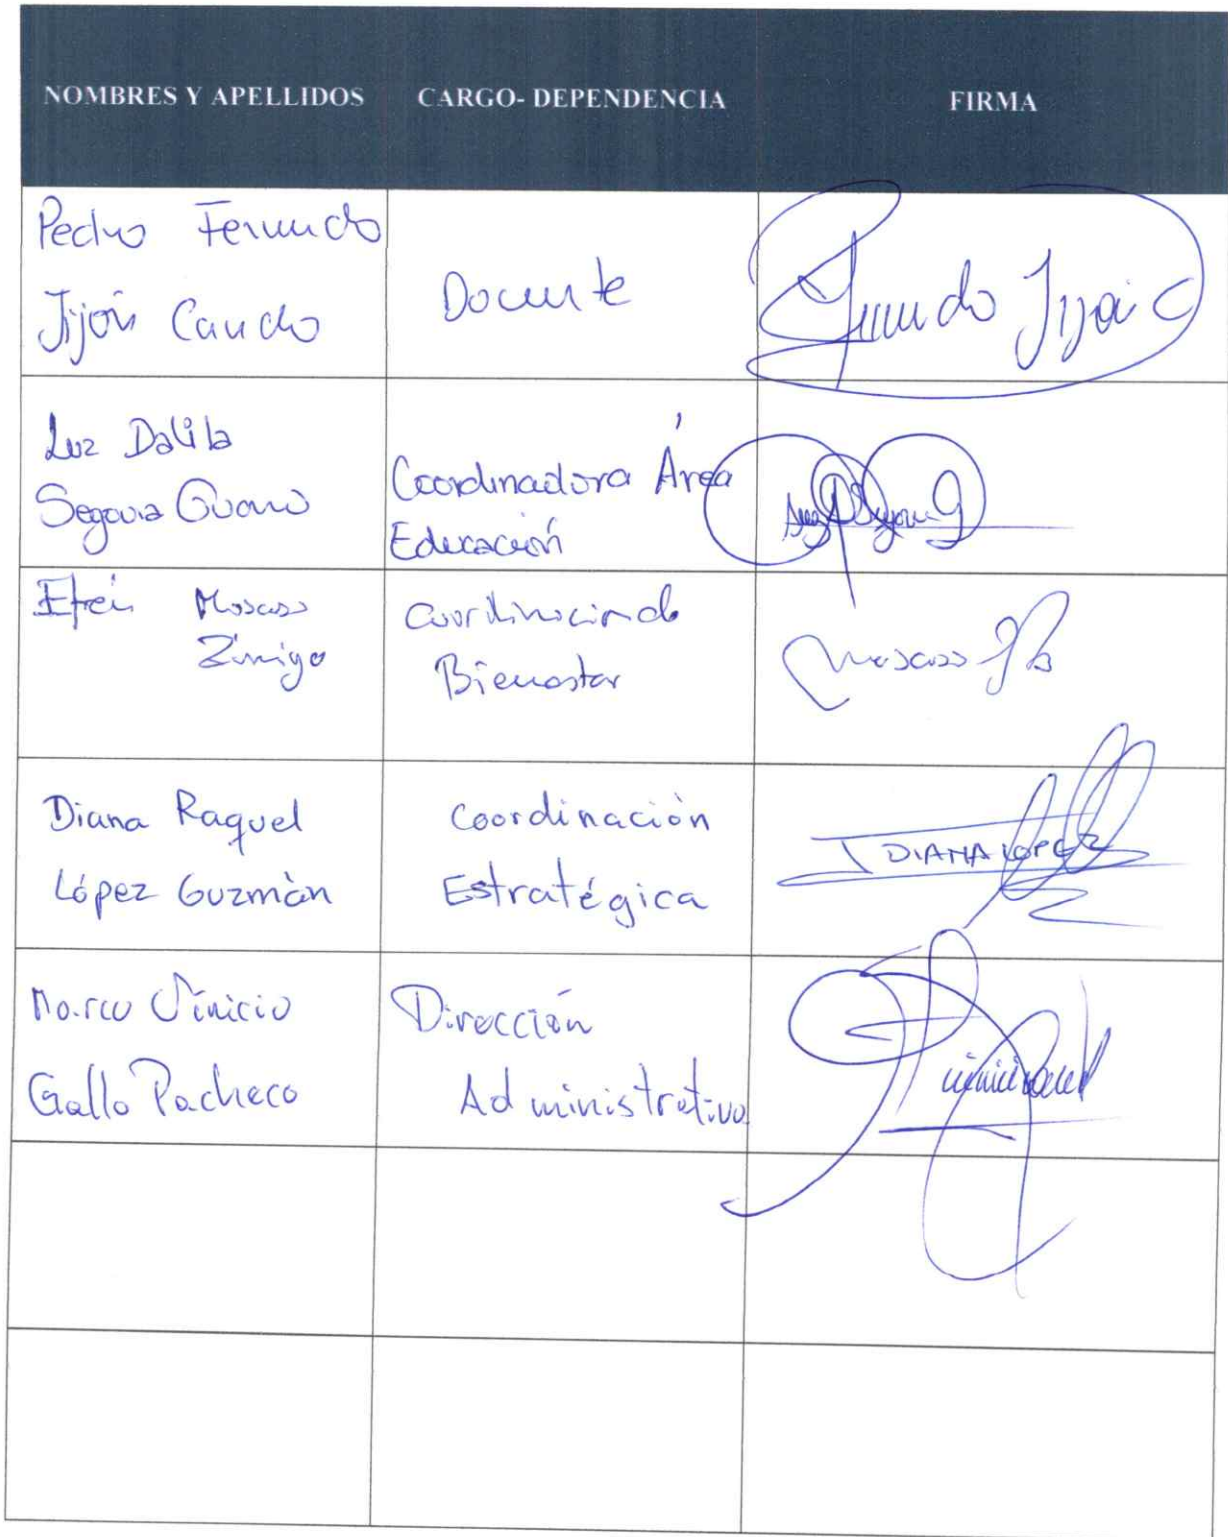 NOMBRES Y APELLIDOS CARGO- DEPENDENCIA FIRMA
Pedro Fernando
Jijón Caucho
Docente
Luz Dalila
Segovia Guano
Coordinadora Área
Educación
Efrén Moscoso
Zúniga
Coordinación de
Bienestar
Moscoso
Diana Raquel
López Guzmàn
Coordinaciòn
Estratégica
DIANA LOPEZ
Marco Vinicio
Gallo Pacheco
Dirección
Administrativa